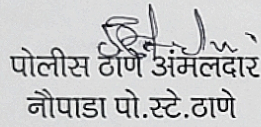 पोलीस ठाणे अंमलदार
नौपाडा पो.स्टे.ठाणे